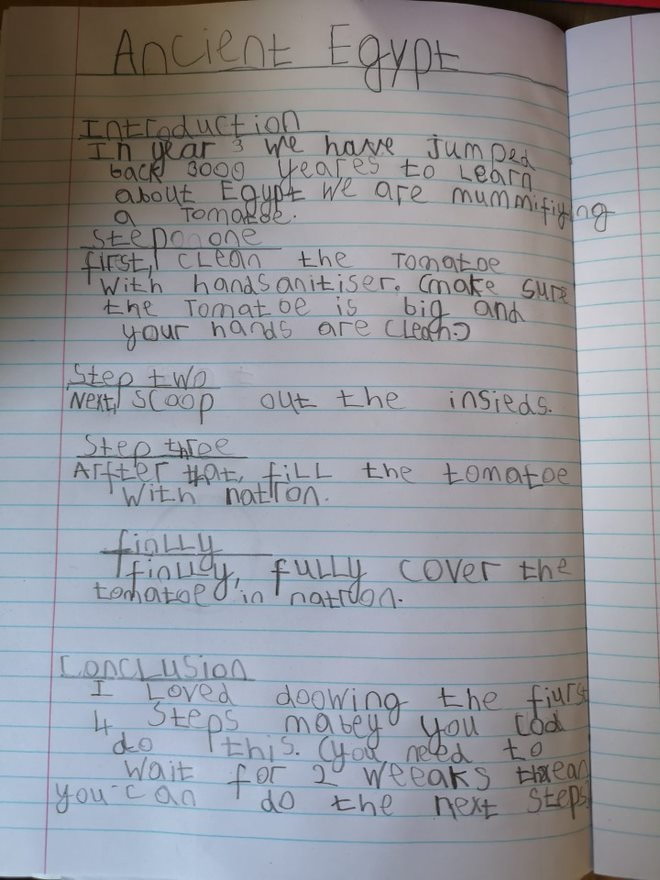 Ancient Egypt
Introduction
In year 3 we have jumped
back 3000 yeares to Learn
about Egypt we are mummifiying
a Tomatoe.
step one
first, clean the Tomatoe
with handsanitiser. (make sure
the Tomatoe is big and
your hands are clean)
Step two
Next, scoop out the insieds.
Step three
Arfter that, fiLL the tomatoe
with natron.
finLLy
finlly, fuLLy cover the
tomatoe in natroon.
ConcLusion
I Loved doowing the fiurst
4 steps mabey you cod
do this. (you need to
wait for 2 weeaks
you can do the next steps